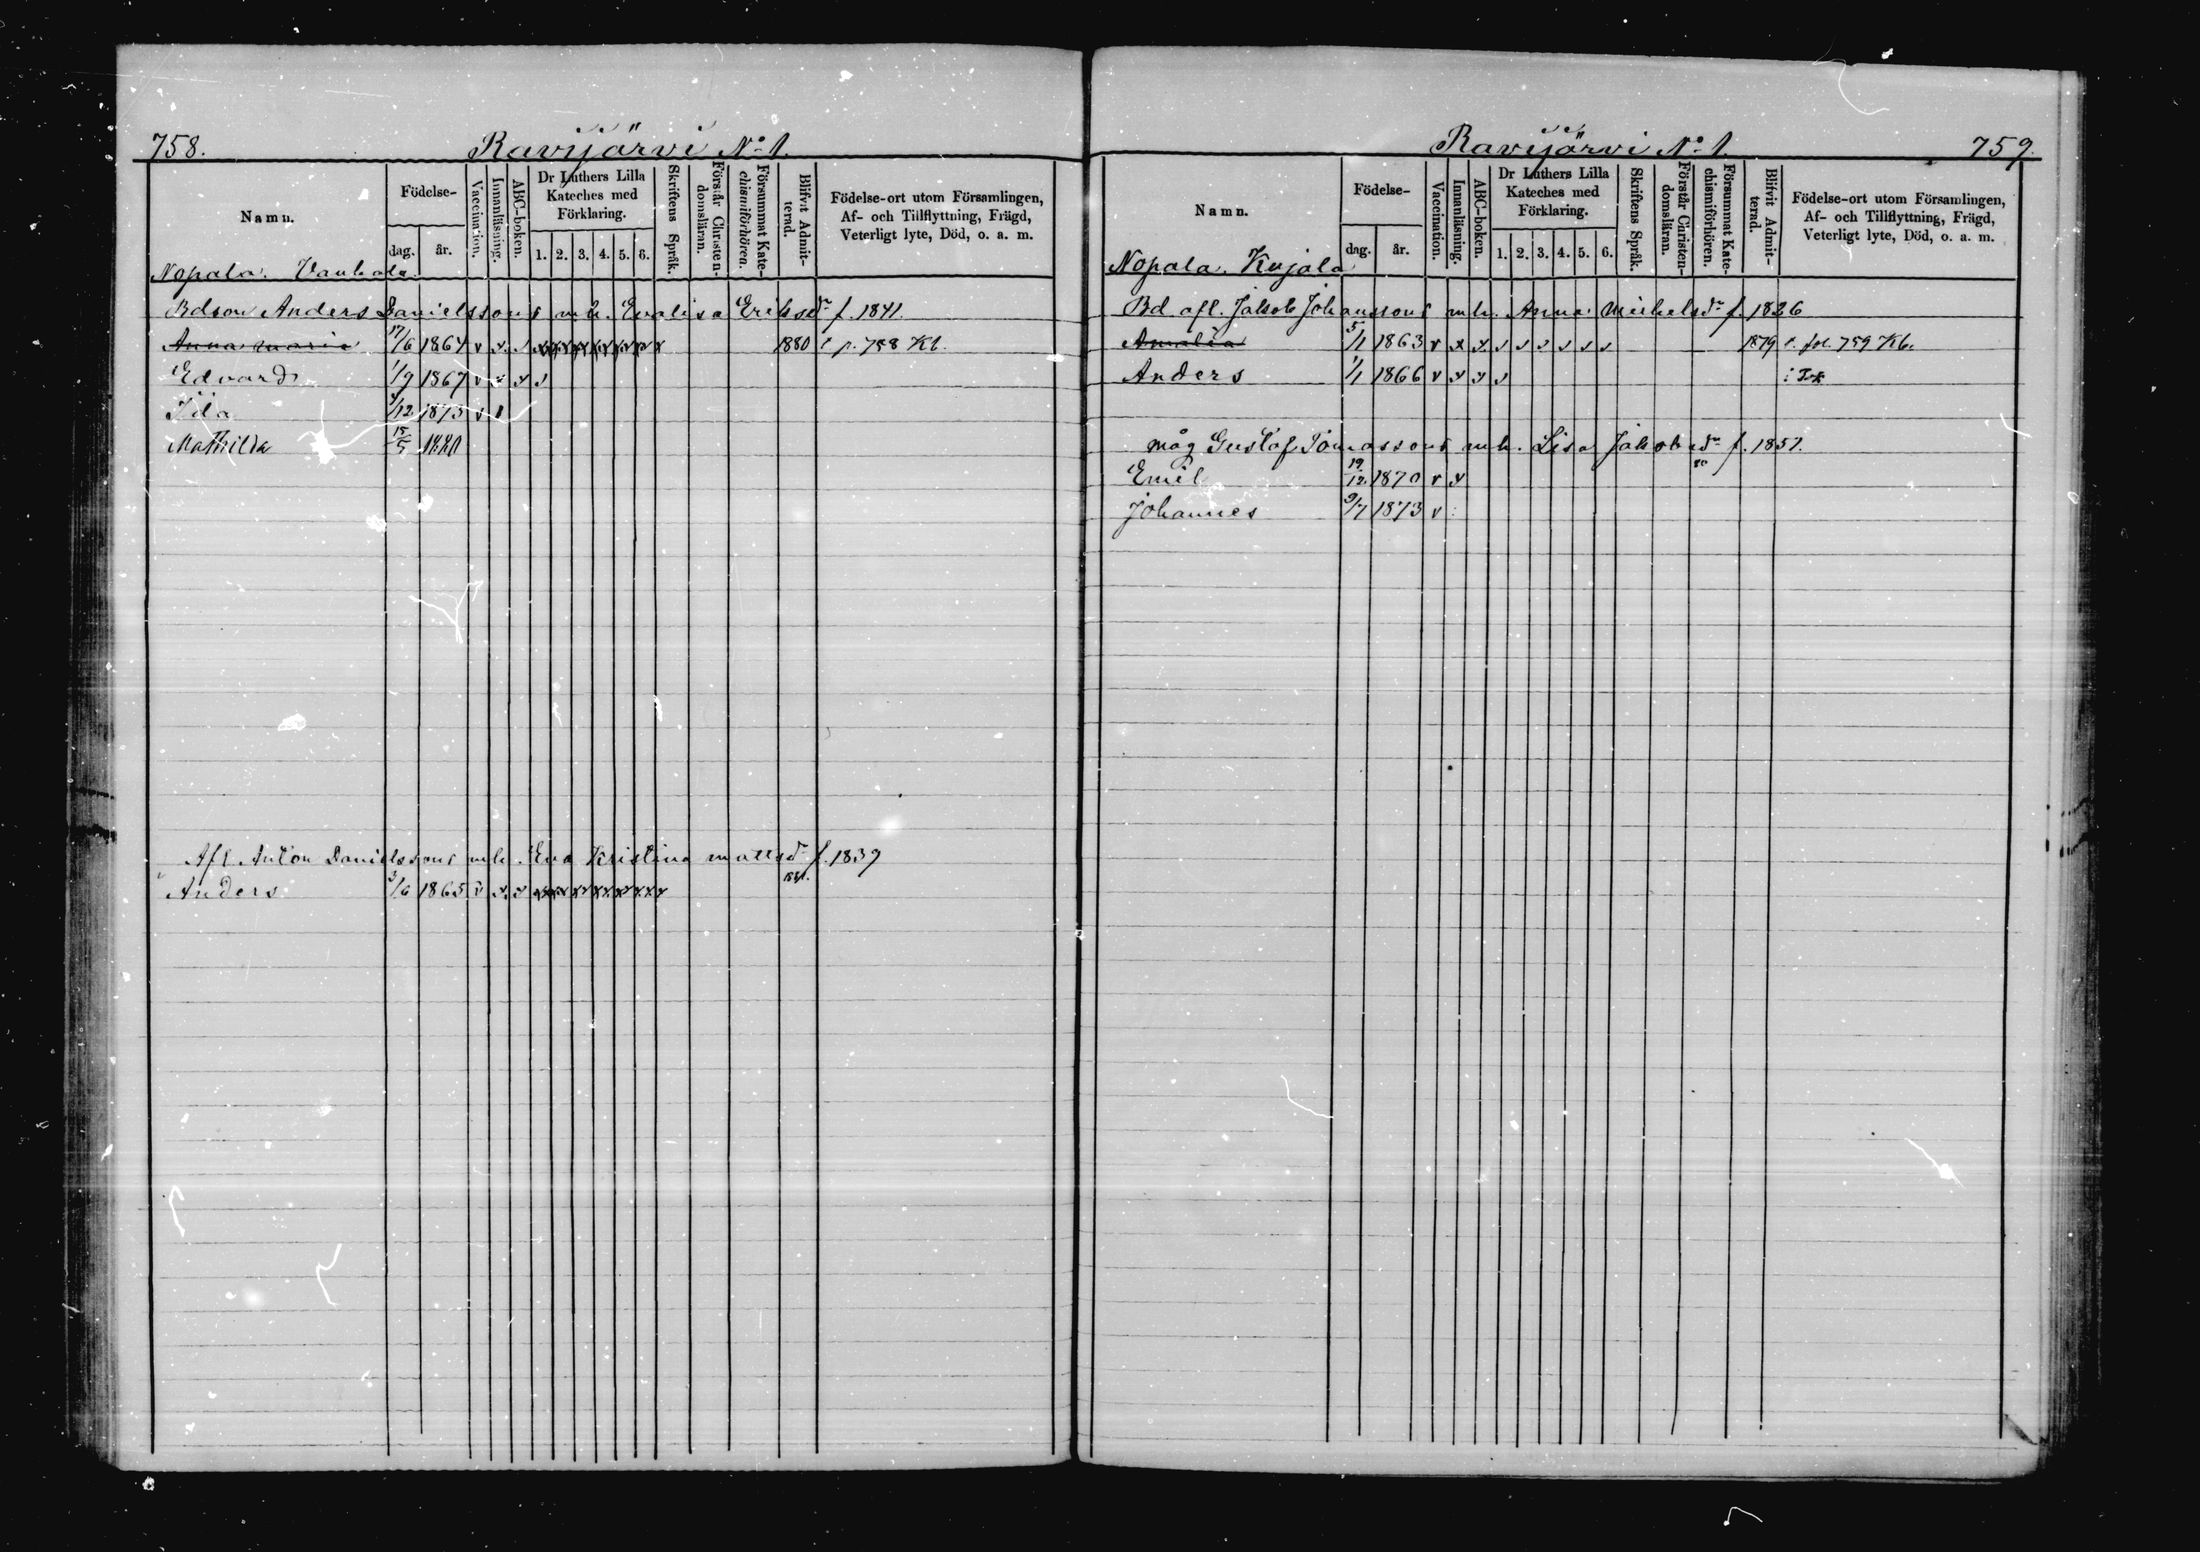 758.
Ravijärvi No 1.
Namn.
Födelse-
dag.
år.
Vaccination.
Innanläsning.
ABC-boken.
Dr Luthers Lilla
Kateches med
Förklaring.
1. 2. 3. 4. 5. 6.
Skriftens Språk.
Förstår Christen-
domsläran.
Försummat Kate-
chismiförhören.
Blifvit Admit-
terad.
Födelse-ort utom Församlingen,
Af- och Tillflyttning, Frägd,
Veterligt lyte, Död, o. a. m.
Nopala. Vanhala
Bdson Anders Danielssons mh. Evalisa Eriksdr f. 1841.
Anna Maria 17/6 1864 v x 1880 p. 758 Kb.
Edvard 1/9 1867 v x x
Ida /12 1873 v
Mathilda 15/5 1880
Afl. Anton Danielssons mh. Eva Kristina Mattsdr f. 1839
Anders 3/6 1865 v x x 1881.
759.
Ravijärvi No 1.
Namn.
Födelse-
dag.
år.
Vaccination.
Innanläsning.
ABC-boken.
Dr Luthers Lilla
Kateches med
Förklaring.
1. 2. 3. 4. 5. 6.
Skriftens Språk.
Förstår Christen-
domsläran.
Försummat Kate-
chismiförhören.
Blifvit Admit-
terad.
Födelse-ort utom Församlingen,
Af- och Tillflyttning, Frägd,
Veterligt lyte, Död, o. a. m.
Nopala. Kujala
Bd afl. Jakob Johanssons mh. Anna Mickelsdr f. 1826
Amalia 5/1 1863 v x x 1879 fol. 759 Kb.
Anders 1/1 1866 v x x
måg Gustaf Tomassons mh. Lisa Jakobsdr f. 1851.
Emil 19/12 1870 v x
Johannes 9/7 1873 v